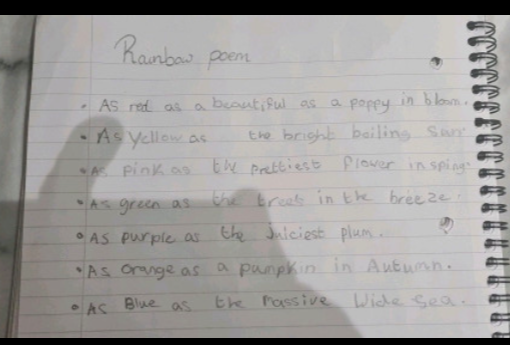 Rainbow poem
• As red as a beautiful as a poppy in bloom.
• As Yellow as the bright boiling Sun
• As pink as the prettiest flower in sping.
• As green as the trees in the breeze.
• As purple as the Juiciest plum.
• As Orange as a pumpkin in Autumn.
• As Blue as the massive Wide Sea.